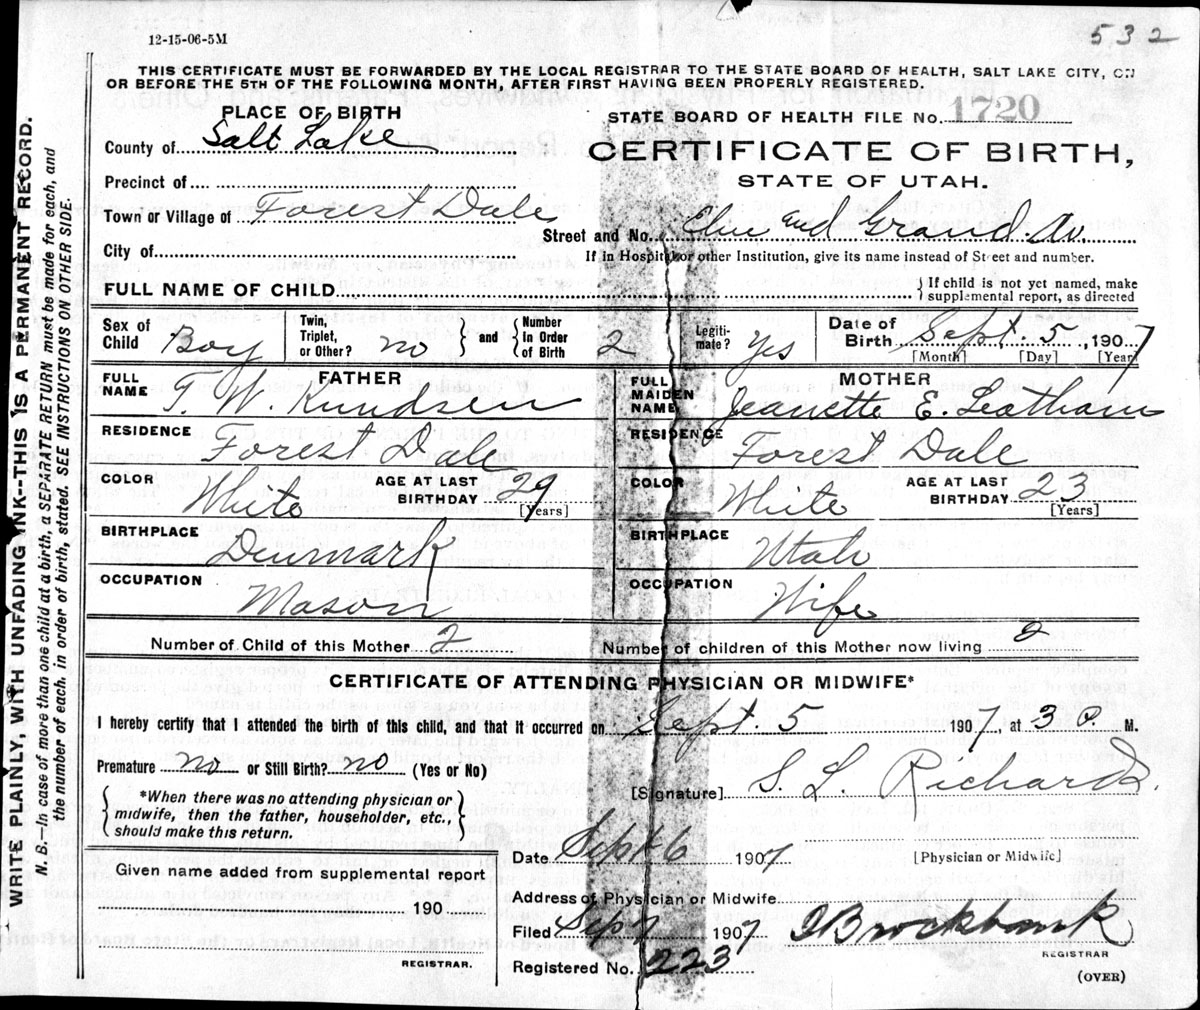 532
12-15-06-5M
THIS CERTIFICATE MUST BE FORWARDED BY THE LOCAL REGISTRAR TO THE STATE BOARD OF HEALTH, SALT LAKE CITY, ON
OR BEFORE THE 5TH OF THE FOLLOWING MONTH, AFTER FIRST HAVING BEEN PROPERLY REGISTERED.
PLACE OF BIRTH
STATE BOARD OF HEALTH FILE No. 1720
County of Salt Lake
CERTIFICATE OF BIRTH,
STATE OF UTAH.
Precinct of
Town or Village of Forest Dale
Street and No. Elm End Grand Av.
City of
If in Hospital or other Institution, give its name instead of Street and number.
FULL NAME OF CHILD
} If child is not yet named, make
supplemental report, as directed
Sex of Child Boy
Twin, Triplet, or Other? no } and { Number In Order of Birth 2
Legiti-mate? yes
Date of Birth Sept. 5, 1907
[Month] [Day] [Year]
FATHER
FULL NAME T. W. Kundsen
MOTHER
FULL MAIDEN NAME Jeanette E. Leatham
RESIDENCE Forest Dale
RESIDENCE Forest Dale
COLOR White AGE AT LAST BIRTHDAY 29 [Years]
COLOR White AGE AT LAST BIRTHDAY 23 [Years]
BIRTHPLACE Denmark
BIRTHPLACE Utah
OCCUPATION Mason
OCCUPATION Wife
Number of Child of this Mother 2
Number of children of this Mother now living 2
CERTIFICATE OF ATTENDING PHYSICIAN OR MIDWIFE*
I hereby certify that I attended the birth of this child, and that it occurred on Sept. 5 1907, at 3 P. M.
Premature no or Still Birth? no (Yes or No)
[Signature] S. L. Richards.
{ *When there was no attending physician or
midwife, then the father, householder, etc.,
should make this return. }
Date Sept 6 1907
[Physician or Midwife]
Given name added from supplemental report
190
REGISTRAR.
Address of Physician or Midwife
Filed Sep 7 1907 Brockbank
REGISTRAR
Registered No. 223
(OVER)
WRITE PLAINLY, WITH UNFADING INK--THIS IS A PERMANENT RECORD.
N. B.--In case of more than one child at a birth, a SEPARATE RETURN must be made for each, and
the number of each, in order of birth, stated. SEE INSTRUCTIONS ON OTHER SIDE.